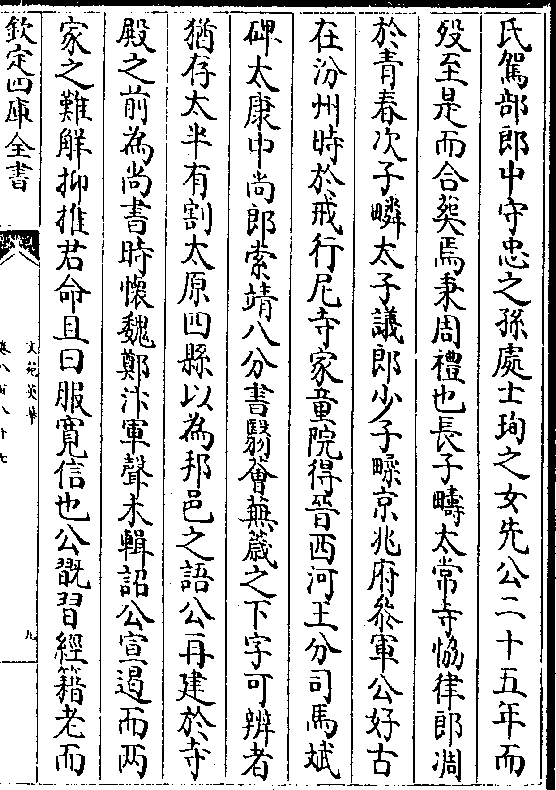 氏駕部郎中守忠之孫處士珣之女先公二十五年而
殁至是而合葬焉秉周禮也長子疇太常寺恊律郎凋
於青春次子疄太子議郎少子㽥京兆府叅軍公好古
在汾州時於戒行尼寺家童院得晉西河王分司馬斌
碑太康中尚郎索靖八分書翳薈蕪蔵之下字可辨者
猶存太半有割太原四縣以為邦邑之語公再建於寺
殿之前為尚書時懷魏鄭汴軍聲未輯詔公宣遏而两
家之難解抑推君命且曰服寛信也公翫習經籍老而
欽定四庫全書
文苑英華
卷八百八十七
九